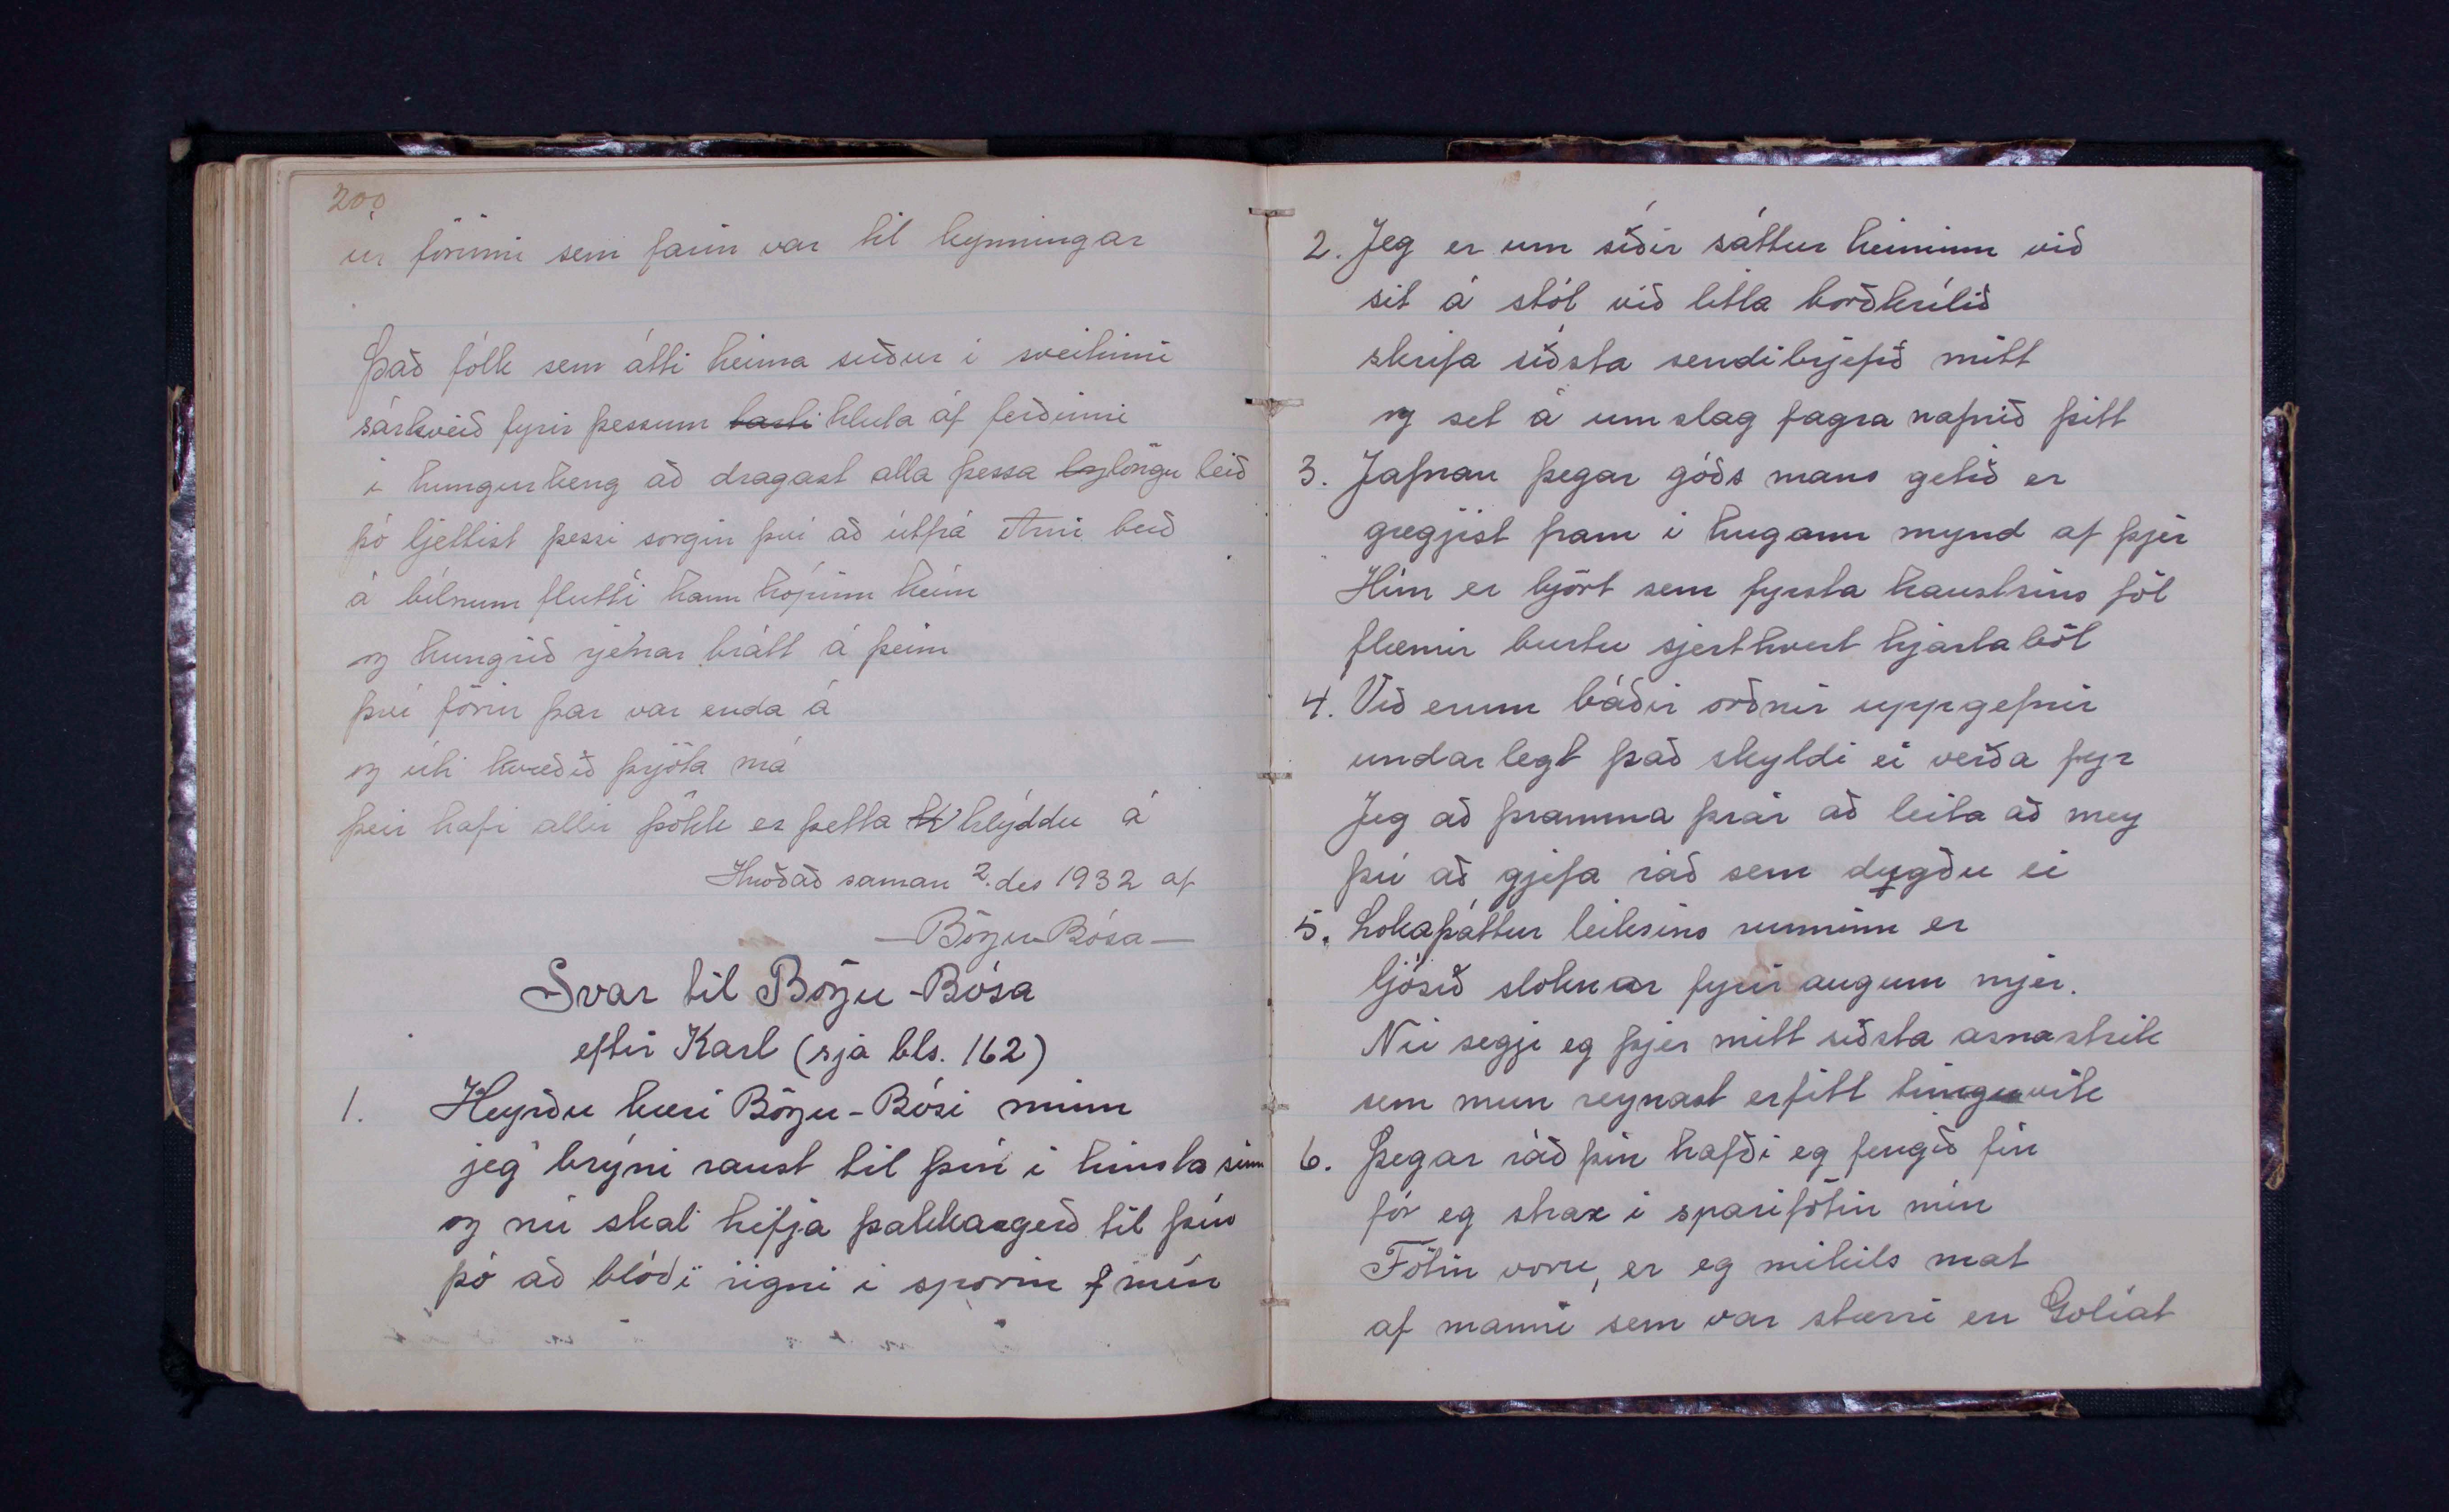 200
úr förinni sem farin var til kynningar
Það fólk sem átti heima suður í sveitinni
sárkveið fyrir þessum parti hluta af ferðinni
í hungurkeng að dragast alla þessa löngu leið
þó ljettist þessi sorgin því að útfrá Arni beið
á bílnum flutti hann hópinn heim
og hungrið rjenar brátt á þeim
því förin þar var enda á
og úti kvæðið þrjóta má
þeir hafi allir þökk er þetta hlýddu á
Hnoðað saman 2. des 1932 af
— Bögu-Bósa —
Svar til Bögu-Bósa
eftir Karl (sjá bls. 162)
1. Heyrðu kæri Bögu-Bósi minn
jeg brýni raust til þín í hinsta sinn
og nú skal hefja þakkargerð til þín
þó að blóði rigni í sporin mín
2. Jeg er um síðir sáttur heiminn við
sit á stól við litla borðkrílið
skrifa síðsta sendibrjefið mitt
og set á umslag fagra nafnið þitt
3. Jafnan þegar góðs mans getið er
grægjist fram í hugann mynd af þjer
Hún er björt sem fyrsta haustsins föl
flæmir burtu sjerthvert hjartaböl
4. Við erum báðir orðnir uppgefnir
undarlegt það skyldi ei verða fyr
Jeg að framma þrár að leita að mey
þú að gjefa ráð sem dygðu ei
5. Lokaþáttur leiksins runninn er
ljósið sloknar fyrir augum mjer.
Nú segji eg þjer mitt síðsta asnastrik
sem mun reynast erfitt tunguvik
6. Þegar ráð þín hafði eg fengið fín
fór eg strax í sparifötin mín
Fötin voru, er eg mikils mat
af manni sem var stærri en Golíat